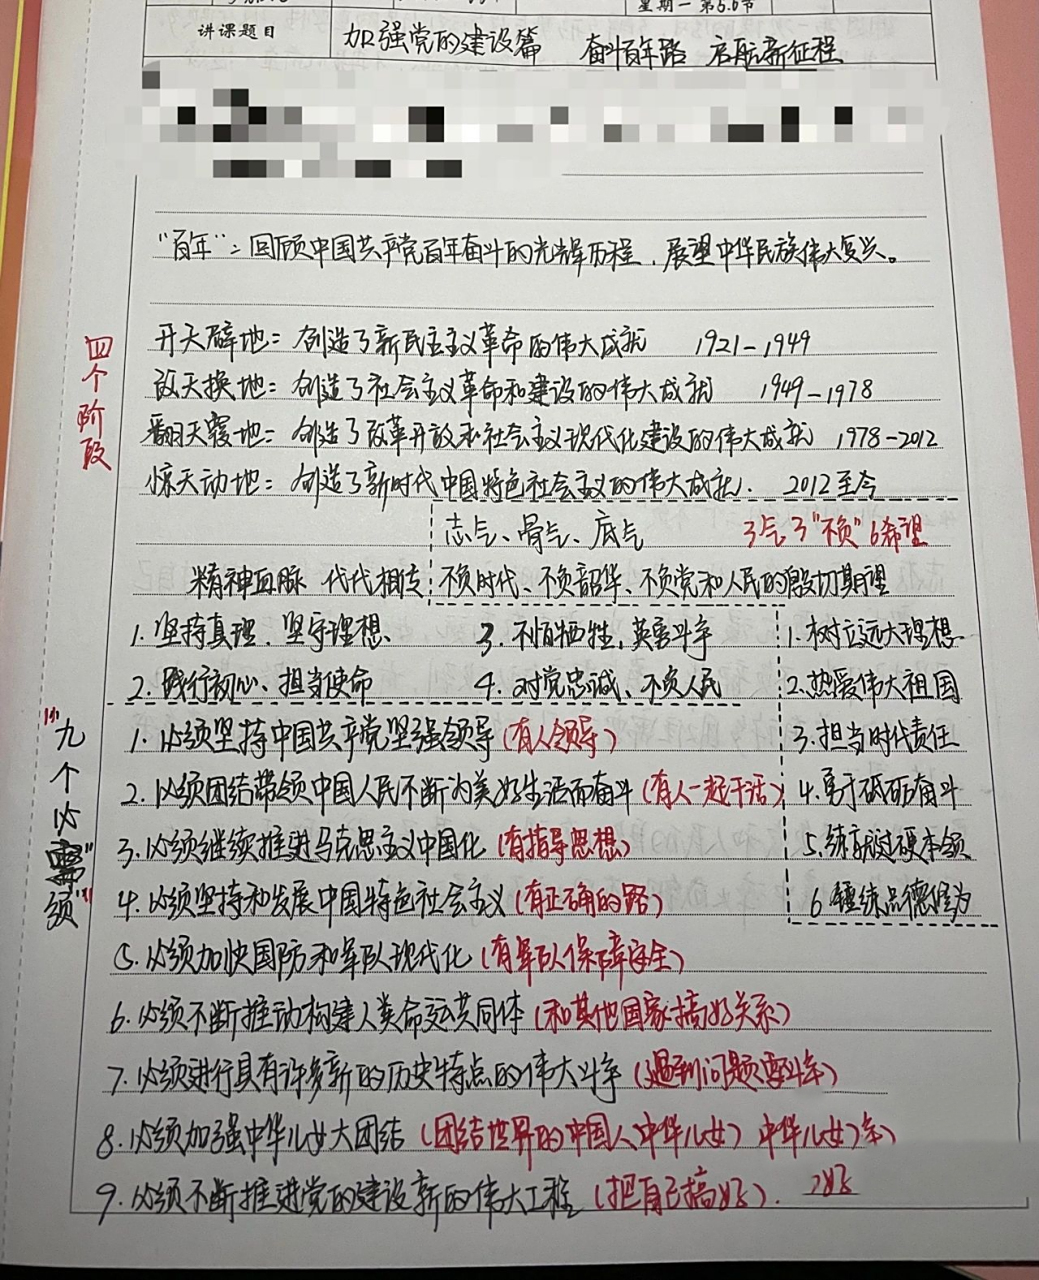 星期一 第5.6节
讲课题目 加强党的建设篇 奋斗百年路 启航新征程
“百年”：回顾中国共产党百年奋斗的光辉历程，展望中华民族伟大复兴。
四个阶段
开天辟地：创造了新民主主义革命的伟大成就 1921-1949
改天换地：创造了社会主义革命和建设的伟大成就 1949-1978
翻天覆地：创造了改革开放和社会主义现代化建设的伟大成就 1978-2012
惊天动地：创造了新时代中国特色社会主义的伟大成就. 2012至今
志气、骨气、底气 3气3“不负”6希望
精神血脉 代代相传 不负时代、不负韶华、不负党和人民的殷切期望
1. 坚持真理、坚守理想. 3. 不怕牺牲，英勇斗争 1. 树立远大理想
2. 践行初心、担当使命 4. 对党忠诚、不负人民 2. 热爱伟大祖国
“九个必须”
1. 必须坚持中国共产党坚强领导（有人领导） 3. 担当时代责任
2. 必须团结带领中国人民不断为美好生活而奋斗（有人一起干活） 4. 勇于砥砺奋斗
3. 必须继续推进马克思主义中国化（有指导思想） 5. 练就过硬本领
4. 必须坚持和发展中国特色社会主义（有正确的路） 6. 锤炼品德修为
5. 必须加快国防和军队现代化（有军队保障安全）
6. 必须不断推动构建人类命运共同体（和其他国家搞好关系）
7. 必须进行具有许多新的历史特点的伟大斗争（遇到问题要斗争）
8. 必须加强中华儿女大团结（团结世界的中国人、中华儿女）中华儿女
9. 必须不断推进党的建设新的伟大工程（把自己搞好）.